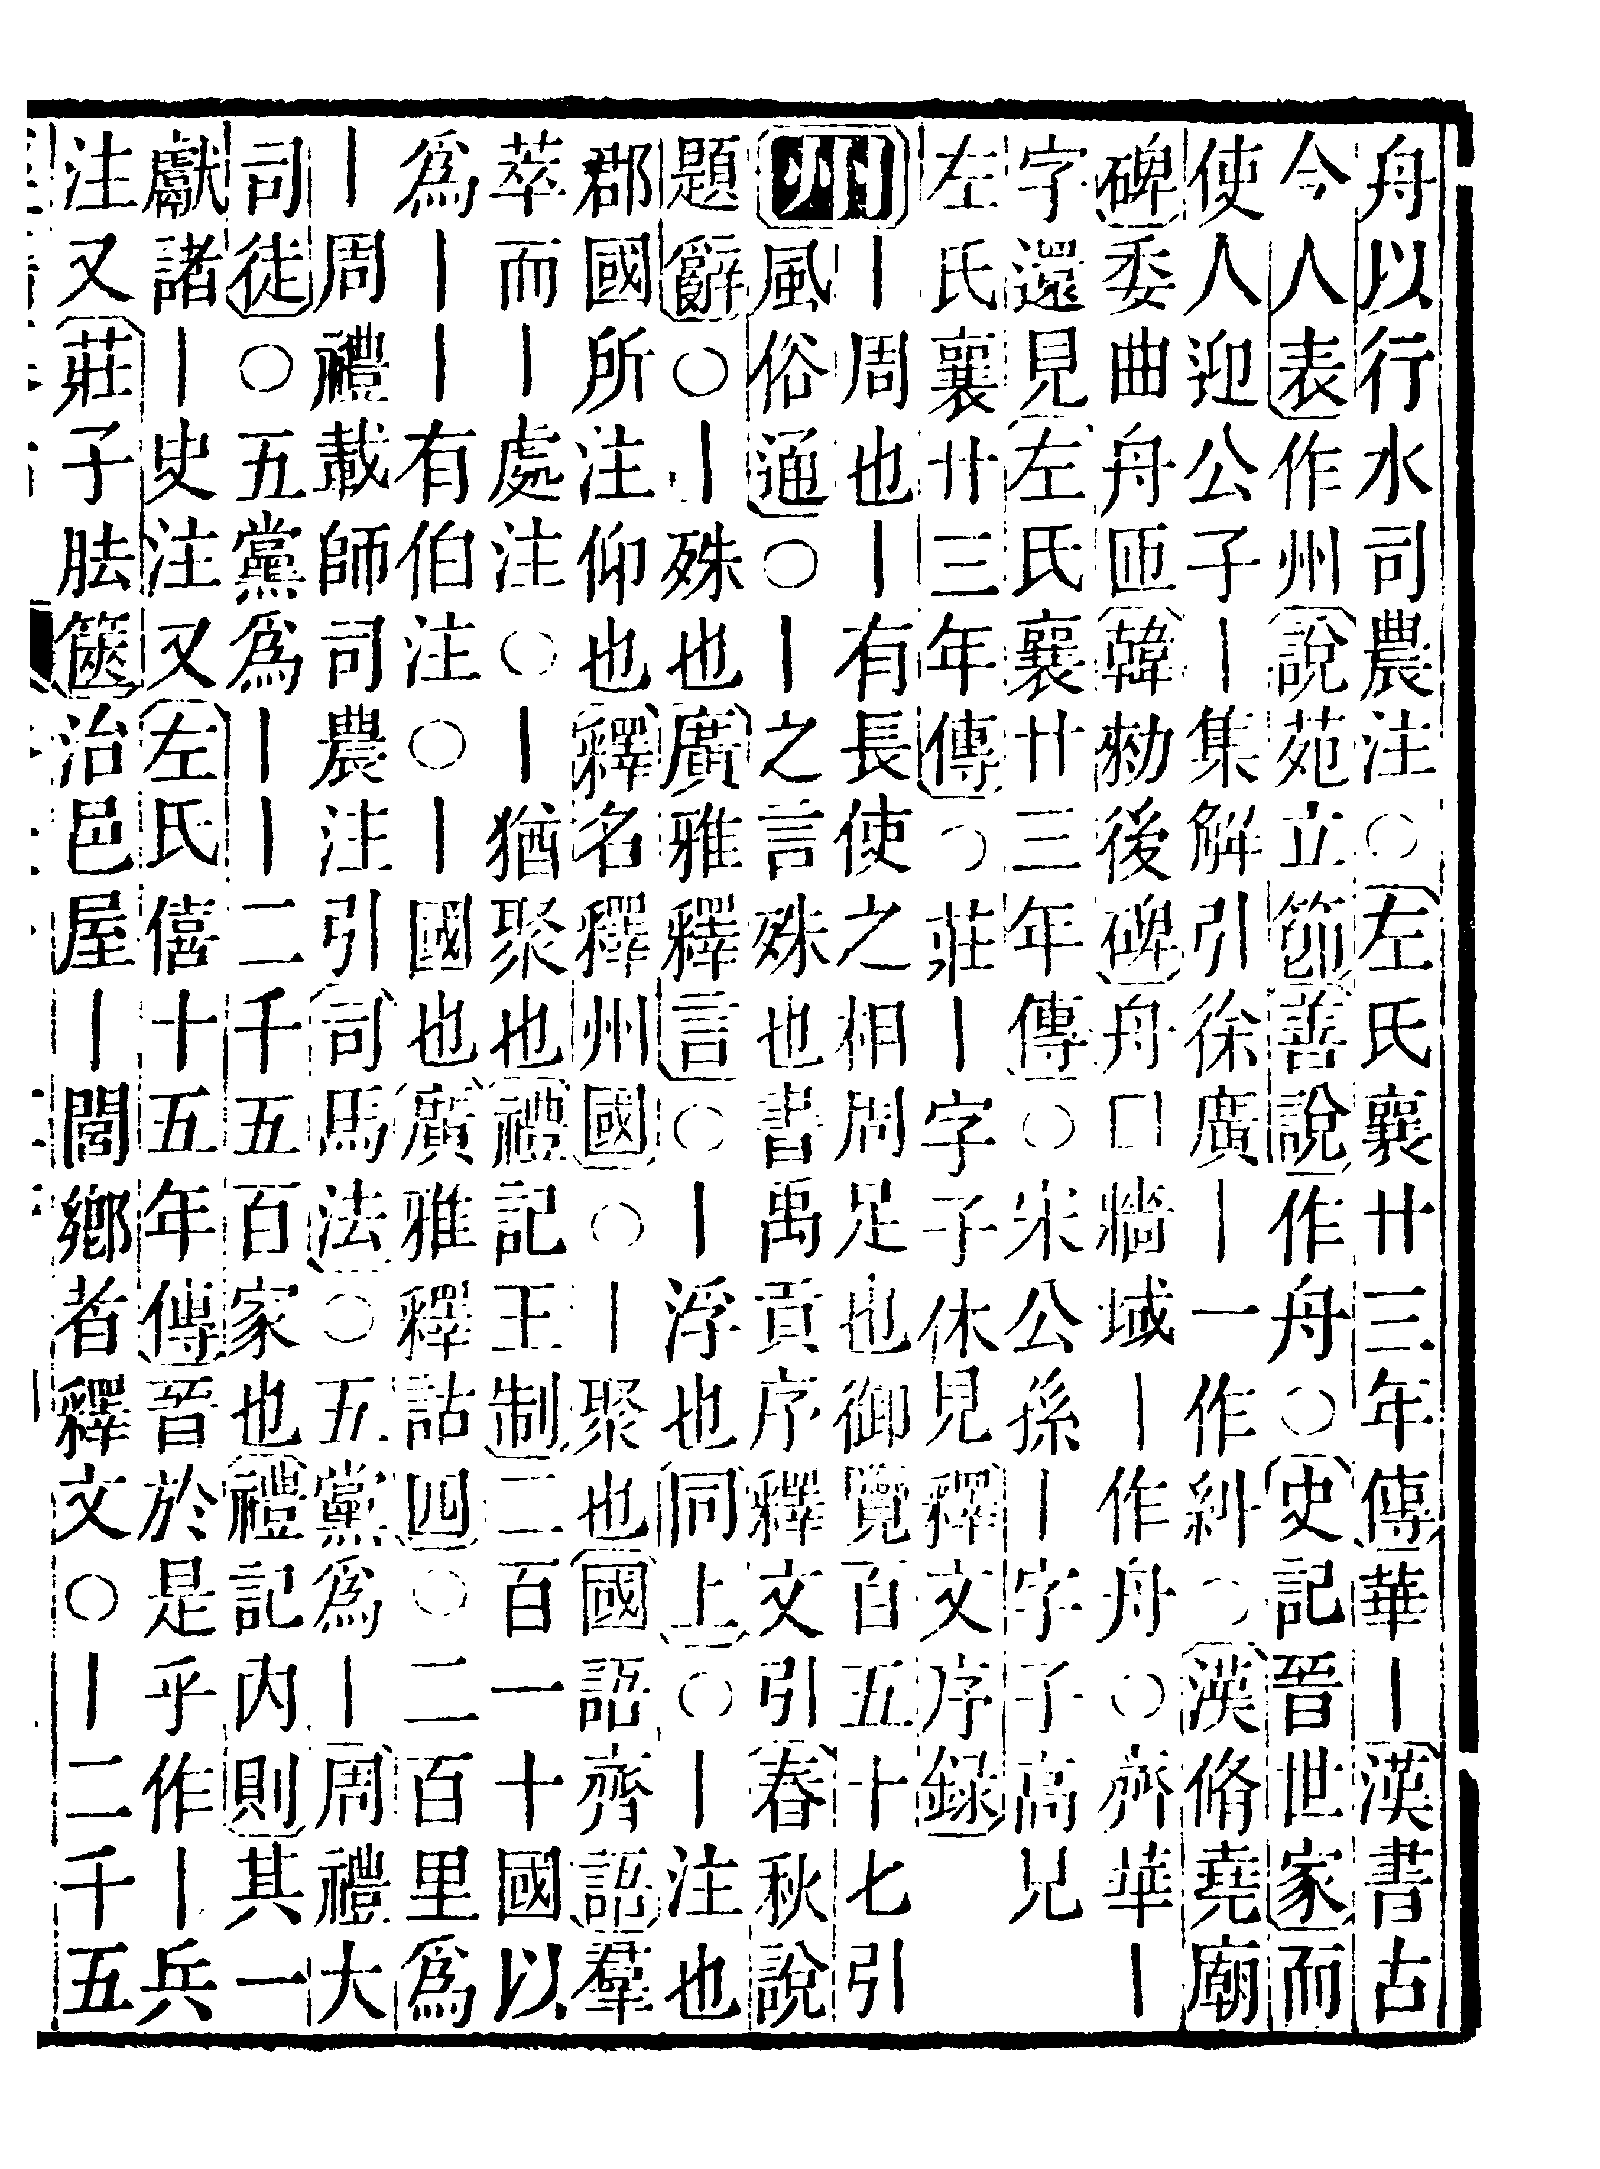 舟以行水司農注○左氏襄廿三年傳華丨漢書古
今人表作州說苑立節善說作舟○史記晉世家而
使人迎公子丨集解引徐廣丨一作糾○漢脩堯廟
碑委曲舟匝韓勑後碑舟□牆域丨作舟○齊華丨
字還見左氏襄廿三年傳○宋公孫丨字子高見
左氏襄廿三年傳○莊丨字子休見釋文序錄
州丨周也丨有長使之相周足也御覽百五十七引
風俗通○丨之言殊也書禹貢序釋文引春秋說
題辭○丨殊也廣雅釋言○丨浮也同上○丨注也
郡國所注仰也釋名釋州國○丨聚也國語齊語羣
萃而丨處注○丨猶聚也禮記王制二百一十國以
爲丨丨有伯注○丨國也廣雅釋詁四○二百里爲
丨周禮載師司農注引司馬法○五黨爲丨周禮大
司徒○五黨爲丨丨二千五百家也禮記內則其一
獻諸丨史注又左氏僖十五年傳晉於是乎作丨兵
注又莊子胠篋治邑屋丨閭鄉者釋文○丨二千五